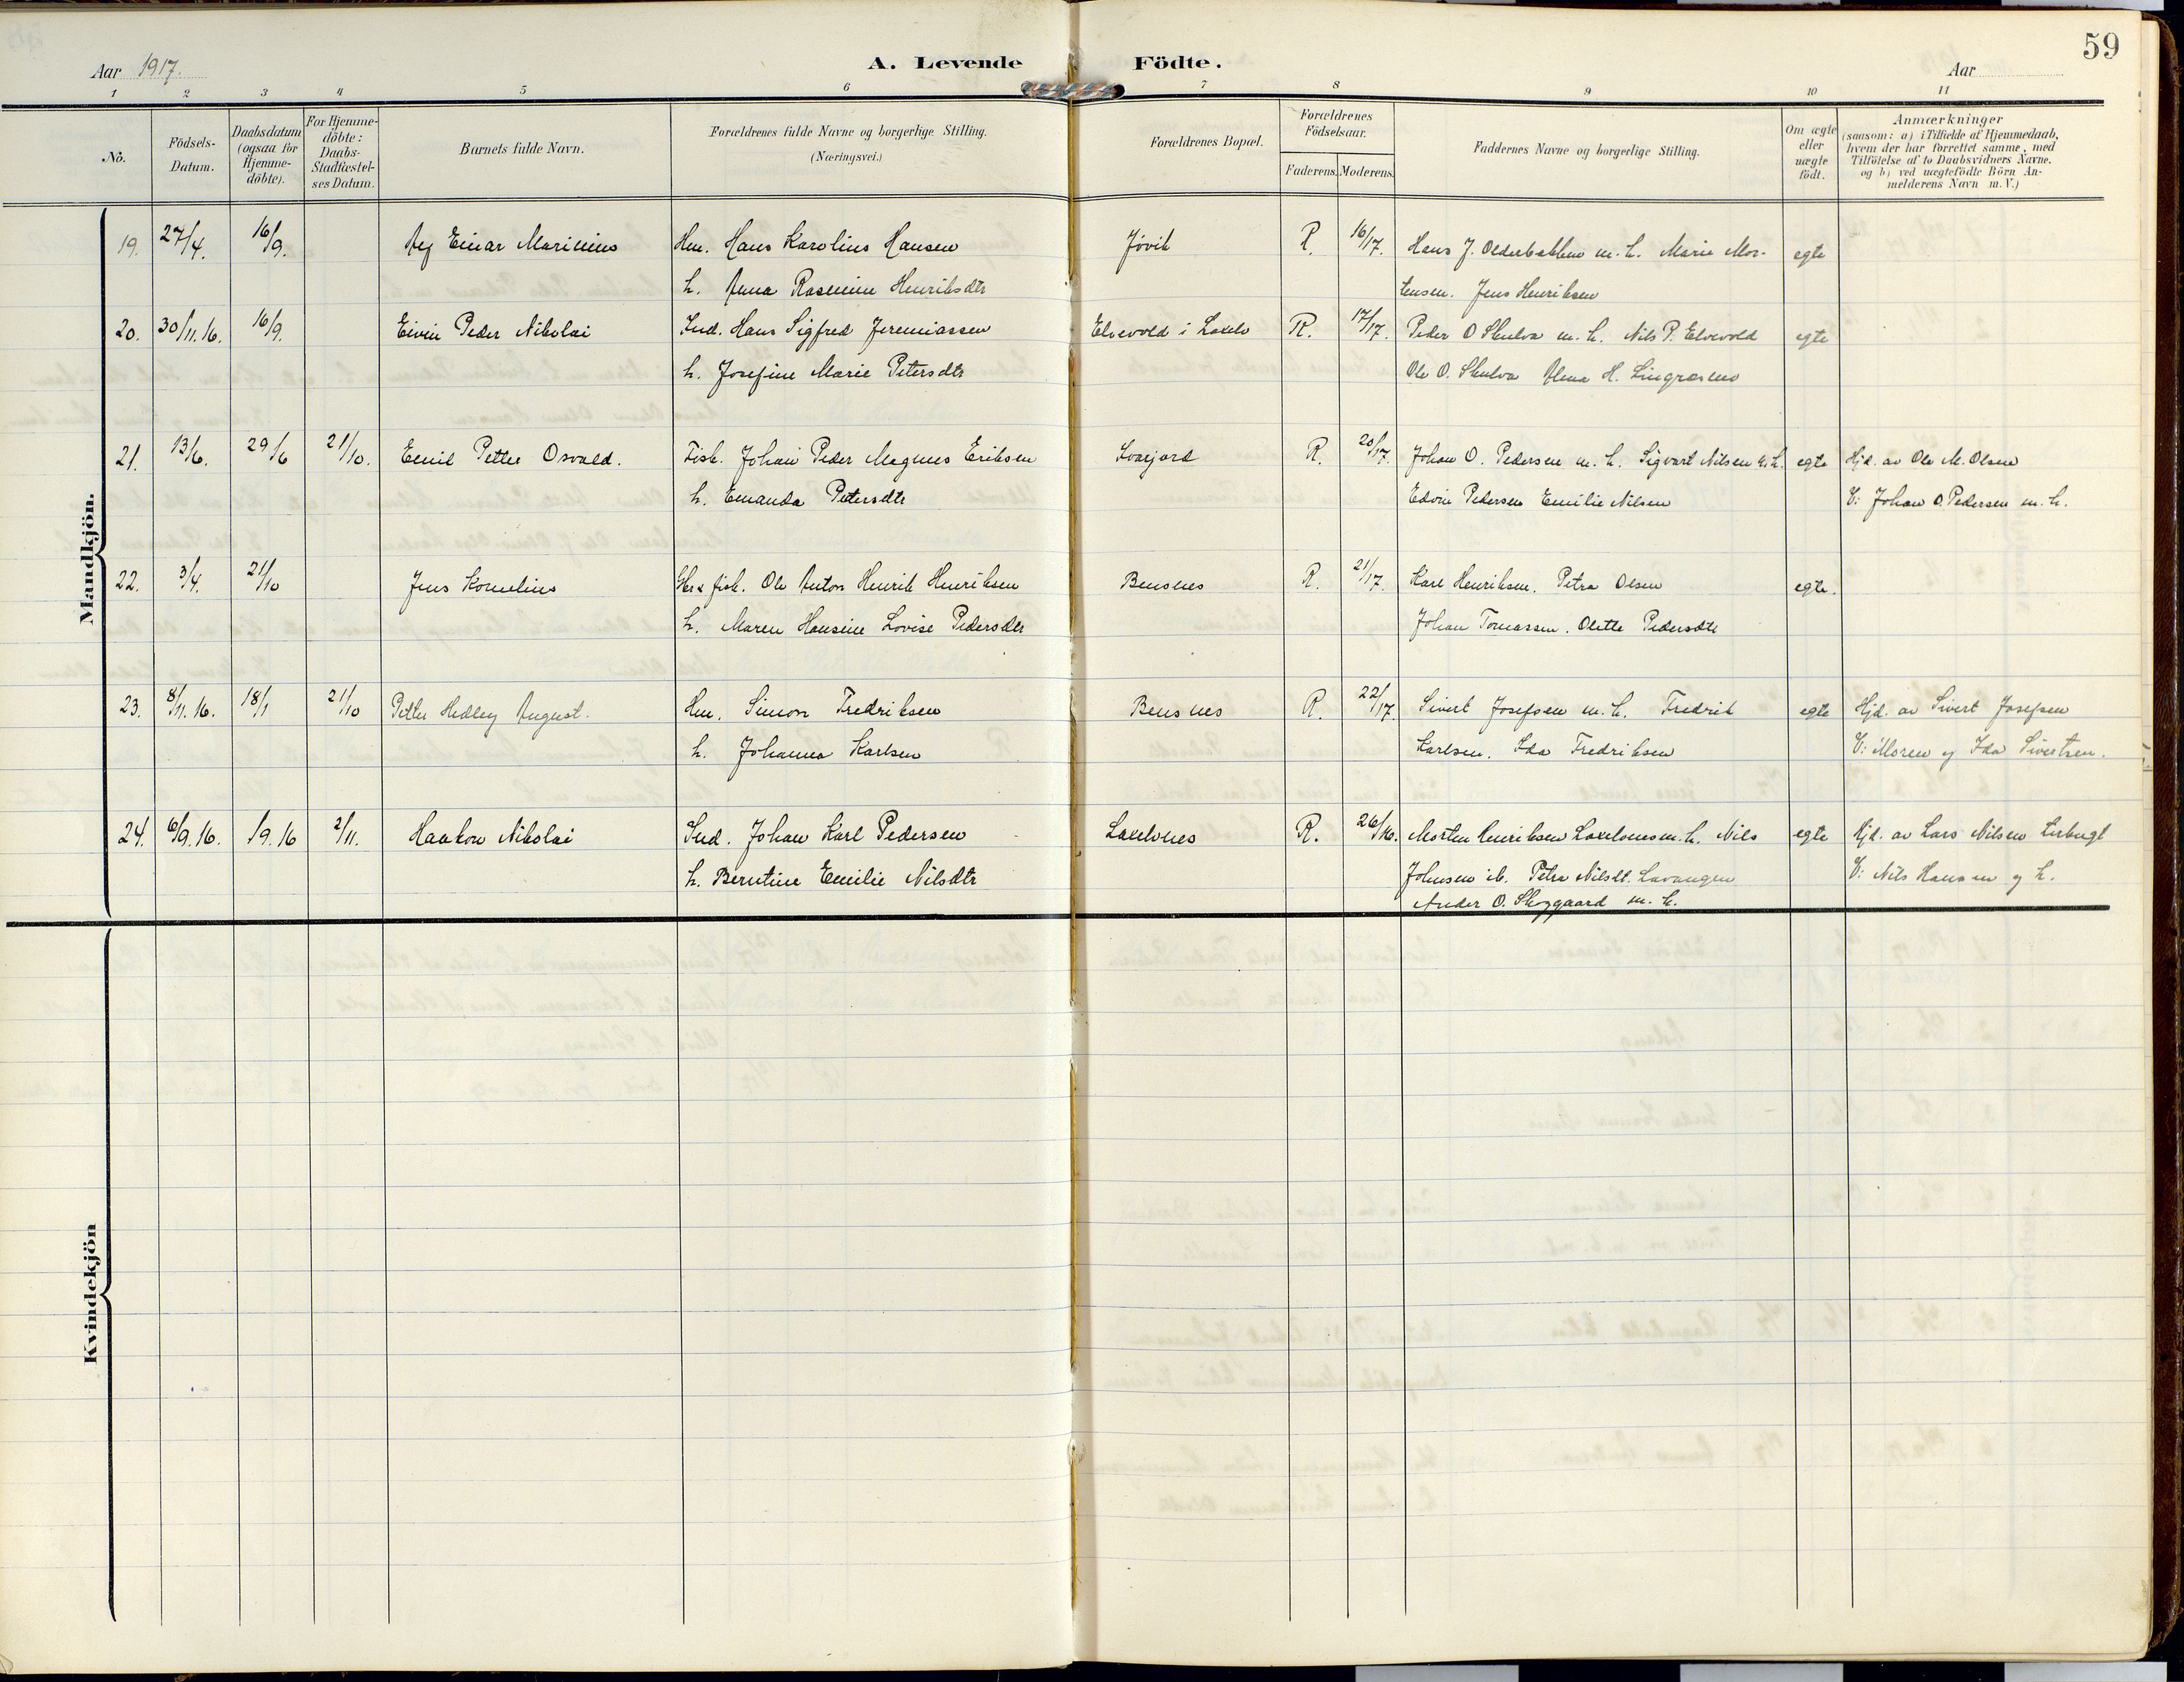 59
Aar 1917.
A. Levende Födte.
Aar
1 2 3 4 5 6 7 8 9 10 11
No.
Födsels-Datum.
Daabsdatum (ogsaa for Hjemme-döbte).
For Hjemme-döbte: Daabs-Stadfæstel-ses Datum.
Barnets fulde Navn.
Forældrenes fulde Navne og borgerlige Stilling.
(Næringsvei.)
Forældrenes Bopæl.
Forældrenes Födselsaar.
Faderens. Moderens.
Faddernes Navne og borgerlige Stilling.
Om ægte eller uægte födt.
Anmærkninger
(saasom: a) i Tilfælde af Hjemmedaab,
hvem der har forrettet samme, med
Tilföielse af to Daabsvidners Navne.
og b) ved uægtefödte Börn An-
melderens Navn m. V.)
Mandkjön.
19. 27/4. 16/9. Einar Marinius Hm. Hans Karolius Hansen Jövik R 16/17. Hans J. Olderbakken m. h. Marie Mor- egte
h. Anna Rasmine Henriksdtr tensen. Jens Henriksen
20. 30/11.16. 16/9. Eivin Peder Nikolai Ind. Hans Sigfred Jeremiassen Elvevold i Lakselv R. 17/17. Peder O Skulva m. h. Nils P. Elvevold egte
h. Josefine Marie Petersdtr Ole O. Skulva Alma H. Lingrasmo
21. 13/6. 29/6 21/10. Emil Petter Osvald. Fisk. Johan Peder Magnus Eriksen Svarjord R. 20/17. Johan O. Pedersen m. h. Sigvart Nilsen m. h. egte Hjd. av Ole M. Olsen
h. Emanda Petersdtr Edvin Pedersen Emilie Nilsen V: Johan O. Pedersen m. h.
22. 3/4. 21/10 Jens Kornelius fisk. Ole Anton Henrik Henriksen Bensnes R. 21/17. Karl Henriksen. Petra Olsen egte.
h. Maren Hansine Lovise Pedersdtr Johan Tomassen. Olette Pedersdtr
23. 8/11.16. 18/1 21/10 Petter Hedley August. Hm. Simon Fredriksen Bensnes R. 22/17. Sivert Josefsen m. h. Fredrik egte Hjd. av Sivert Josefsen
h. Johanna Karlsen Karlsen. Ida Fredriksen V: Moren og Ida Sivertsen.
24. 6/9.16. 19.16 2/11. Haakon Nikolai Ind. Johan Karl Pedersen Lakselvnes R. 26/16. Morten Henriksen Lakselvnes m. h. Nils egte Hjd. av Lars Nilsen
h. Berntine Emilie Nilsdtr Johnsen ib. Petra Nilsdt. Lavangen V: Nils Hansen og h.
Ander O. Skoggaard m. h.
Kvindekjön